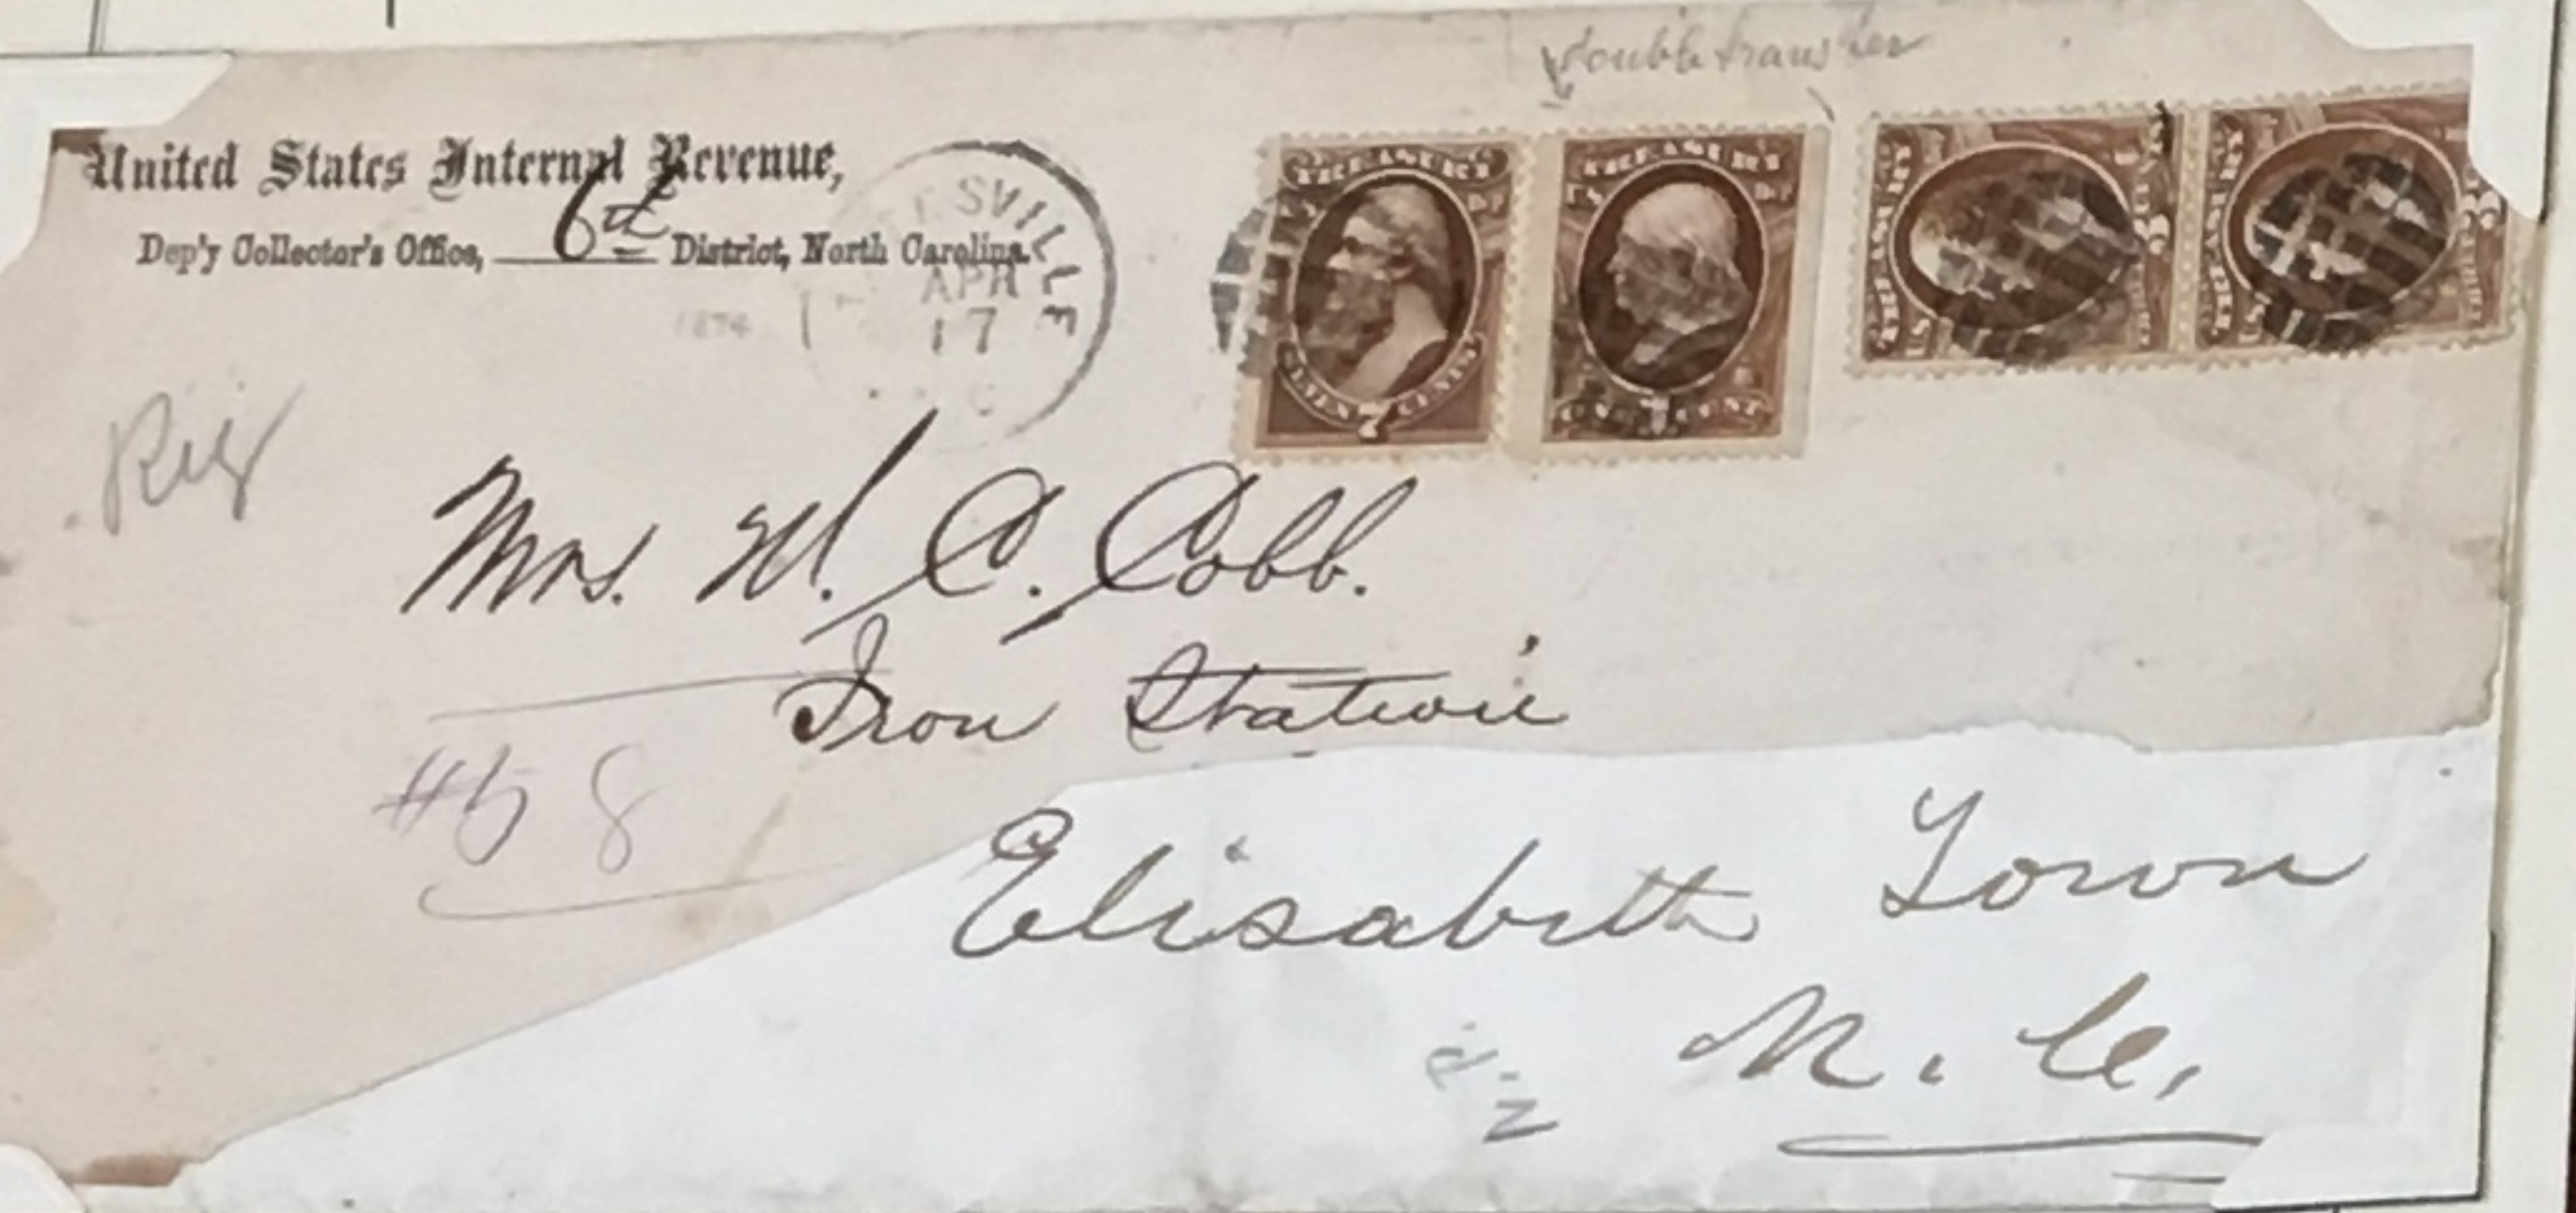 double transfer
United States Internal Revenue,
Dep'y Collector's Office, 6th District, North Carolina.
SVILLE
APR
17
1874
TREASURY
U.S. DPT
SEVEN 7 CENTS
TREASURY
U.S. DPT
ONE 1 CENT
Reg
Mrs. W. C. Cobb.
Iron Station
#58
Elisabeth Town
N. C.